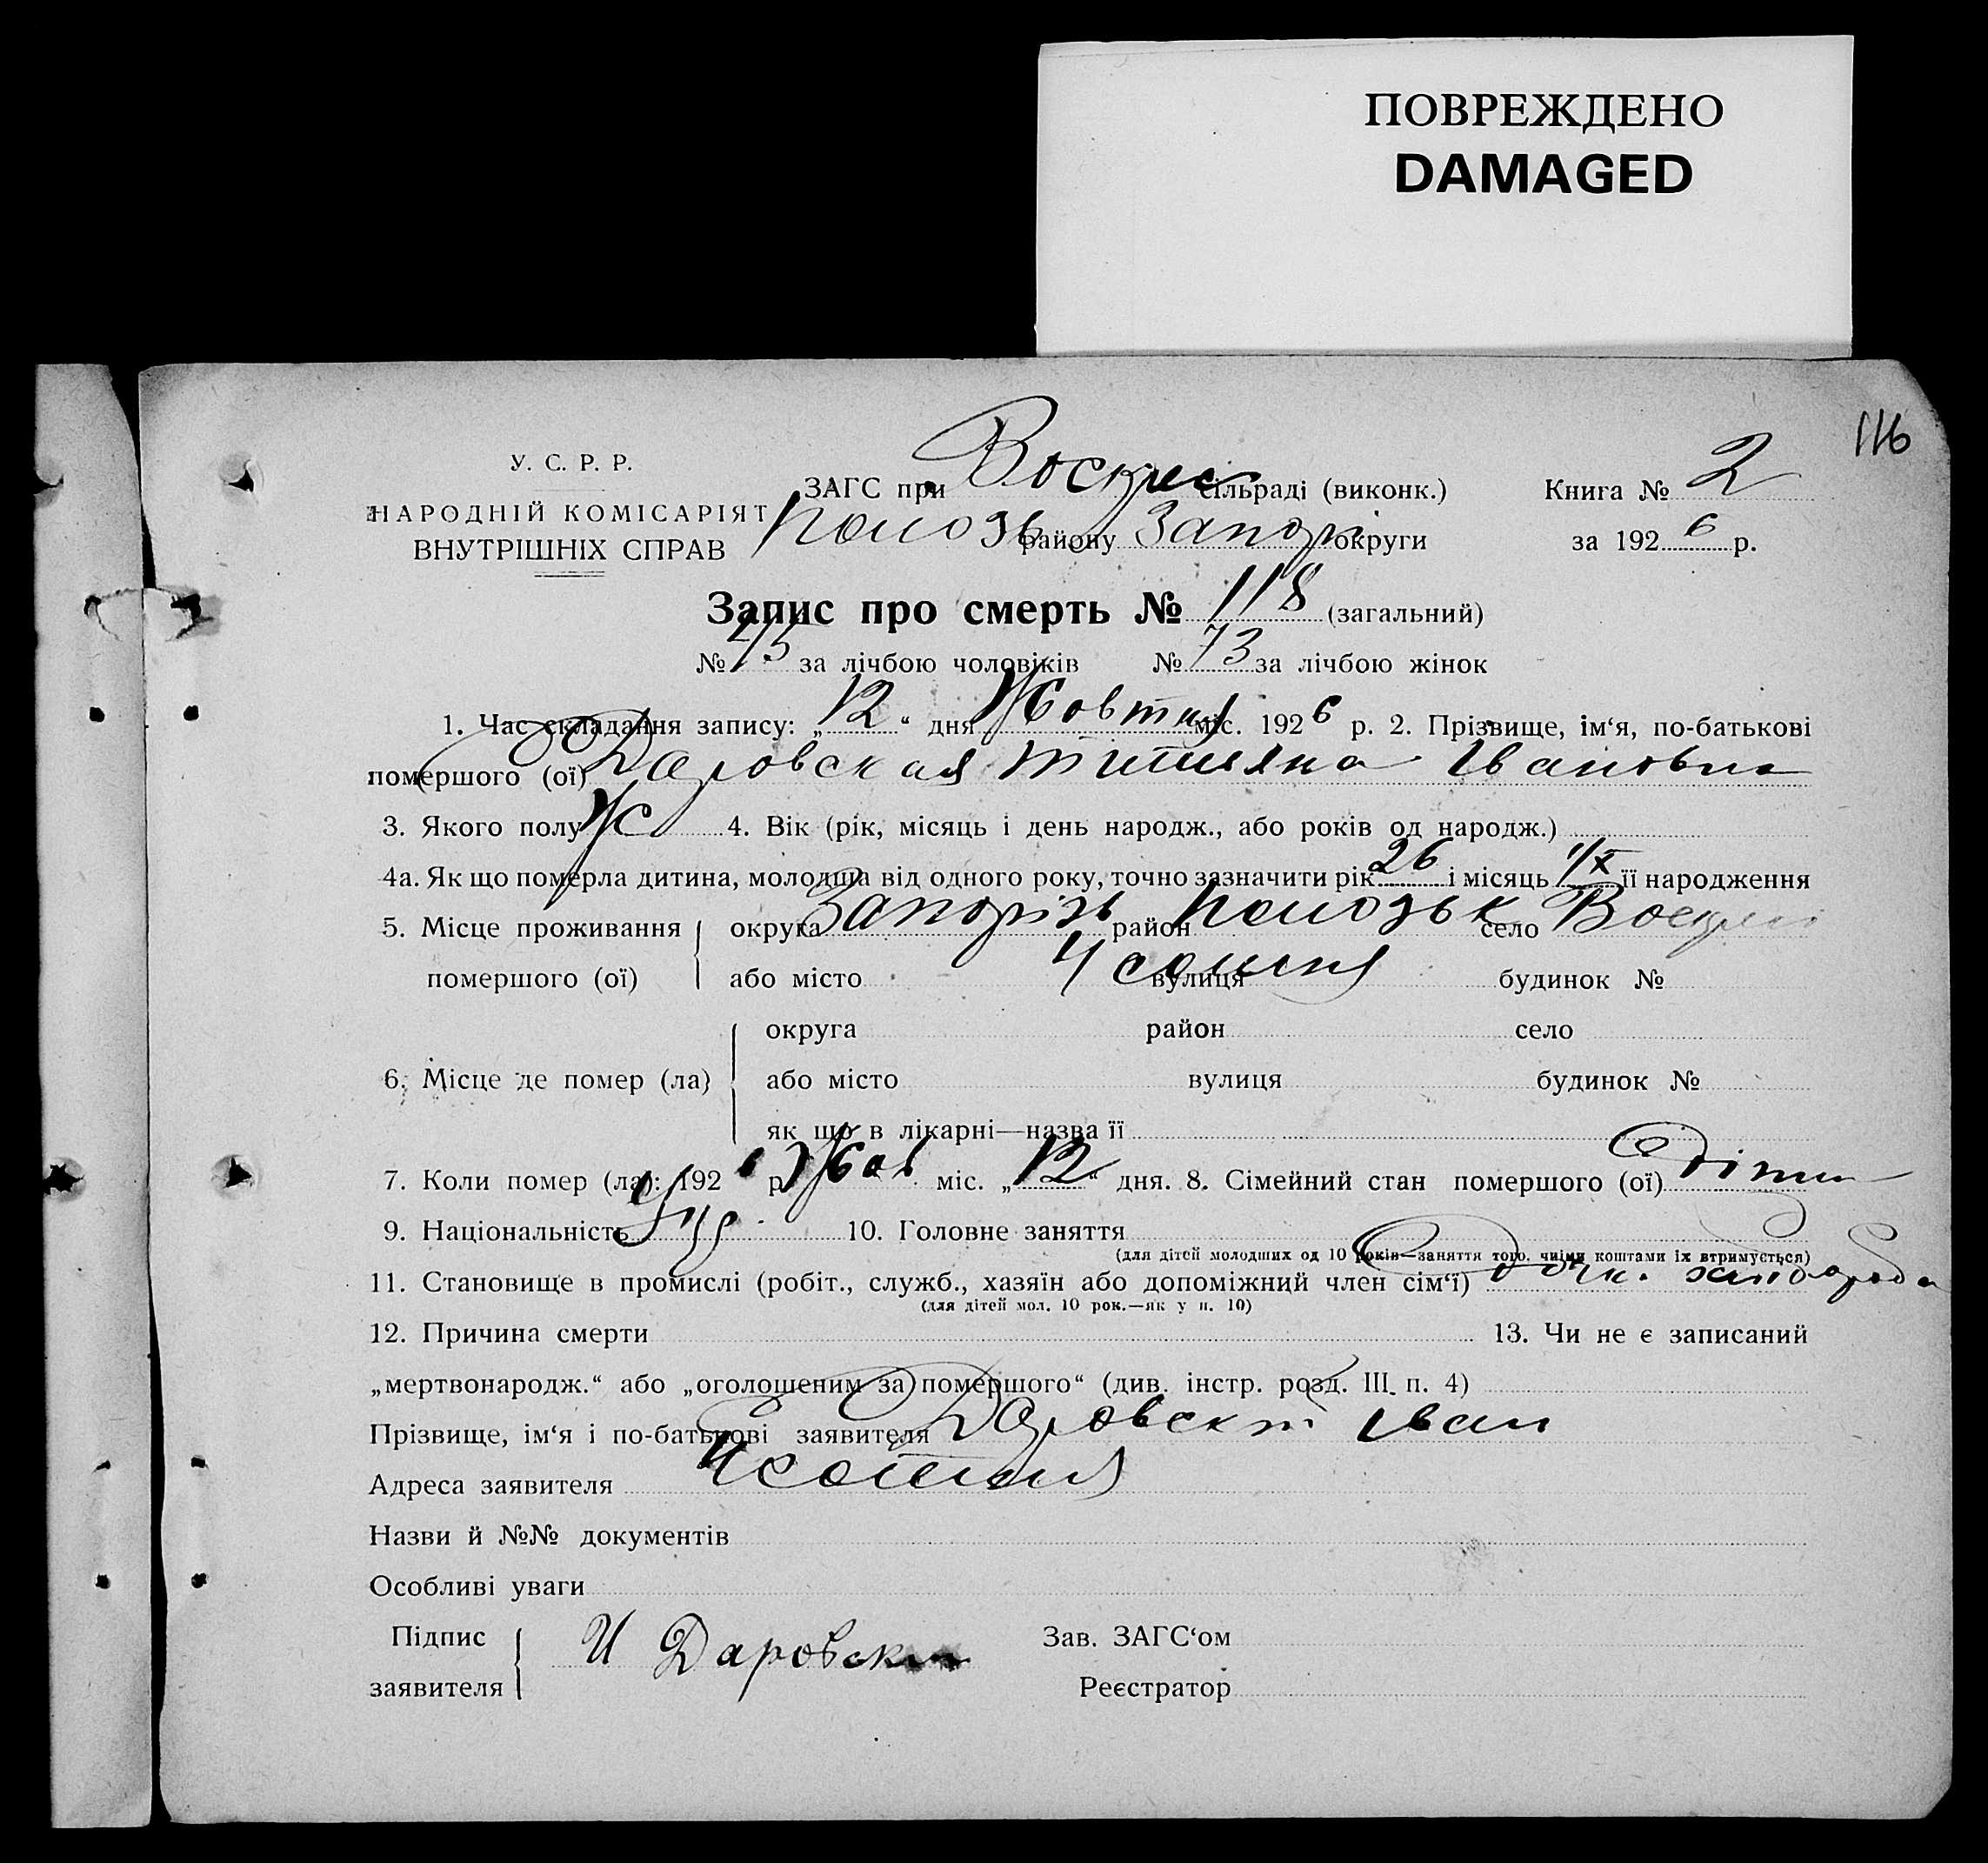 ПОВРЕЖДЕНО
DAMAGED
116
У. С. Р. Р.
НАРОДНІЙ КОМІСАРІЯТ
ВНУТРІШНІХ СПРАВ
ЗАГС при Воскрес сільраді (виконк.) Книга № 2
району Запоріз округи за 1926 р.
Запис про смерть № 118 (загальний)
№ 45 за лічбою чоловіків № 73 за лічбою жінок
1. Час складання запису: „12“ дня Жовтня міс. 1926 р. 2. Прізвище, ім‘я, по-батькові
помершого (ої) Даровская Титияна Івановна
3. Якого полу Ж 4. Вік (рік, місяць і день народж., або років од народж.)
4а. Як що померла дитина, молодша від одного року, точно зазначити рік 26 і місяць її народження
5. Місце проживання помершого (ої) округа Запорізь район село Воскрес
або місто 4 сотня вулиця будинок №
6. Місце де помер (ла) округа район село
або місто вулиця будинок №
як що в лікарні—назва її
7. Коли помер (ла): 1926 р. Жов міс. „12“ дня. 8. Сімейний стан помершого (ої)
9. Національність Укр 10. Головне заняття
(для дітей молодших од 10 років—заняття того, чиїми коштами їх втримується)
11. Становище в промислі (робіт., служб., хазяїн або допоміжний член сім‘ї)
(для дітей мол. 10 рок.—як у п. 10)
12. Причина смерти 13. Чи не є записаний
„мертвонародж.“ або „оголошеним за помершого“ (див. інстр. розд. III. п. 4)
Прізвище, ім‘я і по-батькові заявителя Даровский Іван
Адреса заявителя 4 сотня
Назви й №№ документів
Особливі уваги
Підпис заявителя И Даровски Зав. ЗАГС‘ом
Реєстратор